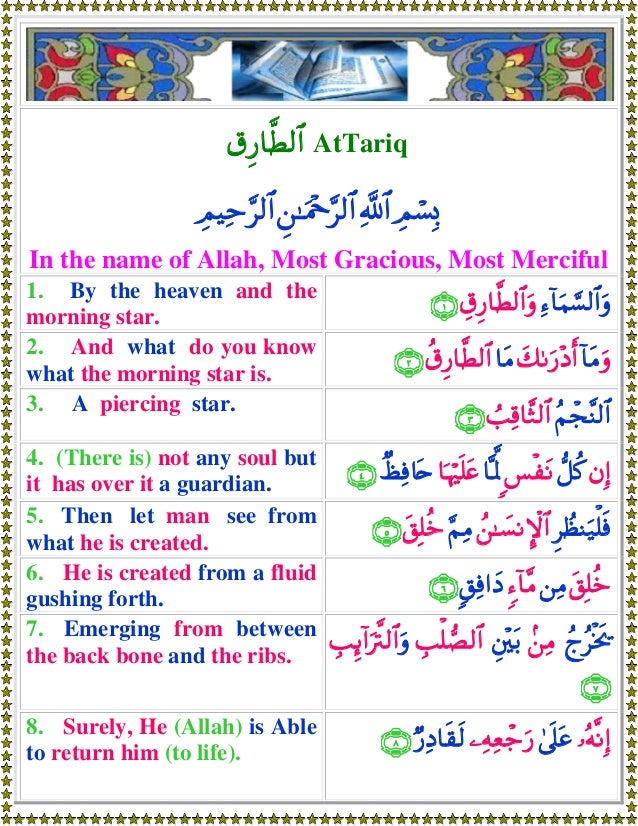 ٱلطَّارِق AtTariq
بِسْمِ ٱللَّهِ ٱلرَّحْمَـٰنِ ٱلرَّحِيمِ
In the name of Allah, Most Gracious, Most Merciful
1. By the heaven and the
morning star.
وَٱلسَّمَآءِ وَٱلطَّارِقِ ١
2. And what do you know
what the morning star is.
وَمَآ أَدْرَىٰكَ مَا ٱلطَّارِقُ ٢
3. A piercing star.
ٱلنَّجْمُ ٱلثَّاقِبُ ٣
4. (There is) not any soul but
it has over it a guardian.
إِن كُلُّ نَفْسٍ لَّمَّا عَلَيْهَا حَافِظٌ ٤
5. Then let man see from
what he is created.
فَلْيَنظُرِ ٱلْإِنسَـٰنُ مِمَّ خُلِقَ ٥
6. He is created from a fluid
gushing forth.
خُلِقَ مِن مَّآءٍ دَافِقٍ ٦
7. Emerging from between
the back bone and the ribs.
يَخْرُجُ مِنۢ بَيْنِ ٱلصُّلْبِ وَٱلتَّرَآئِبِ
٧
8. Surely, He (Allah) is Able
to return him (to life).
إِنَّهُۥ عَلَىٰ رَجْعِهِۦ لَقَادِرٌ ٨